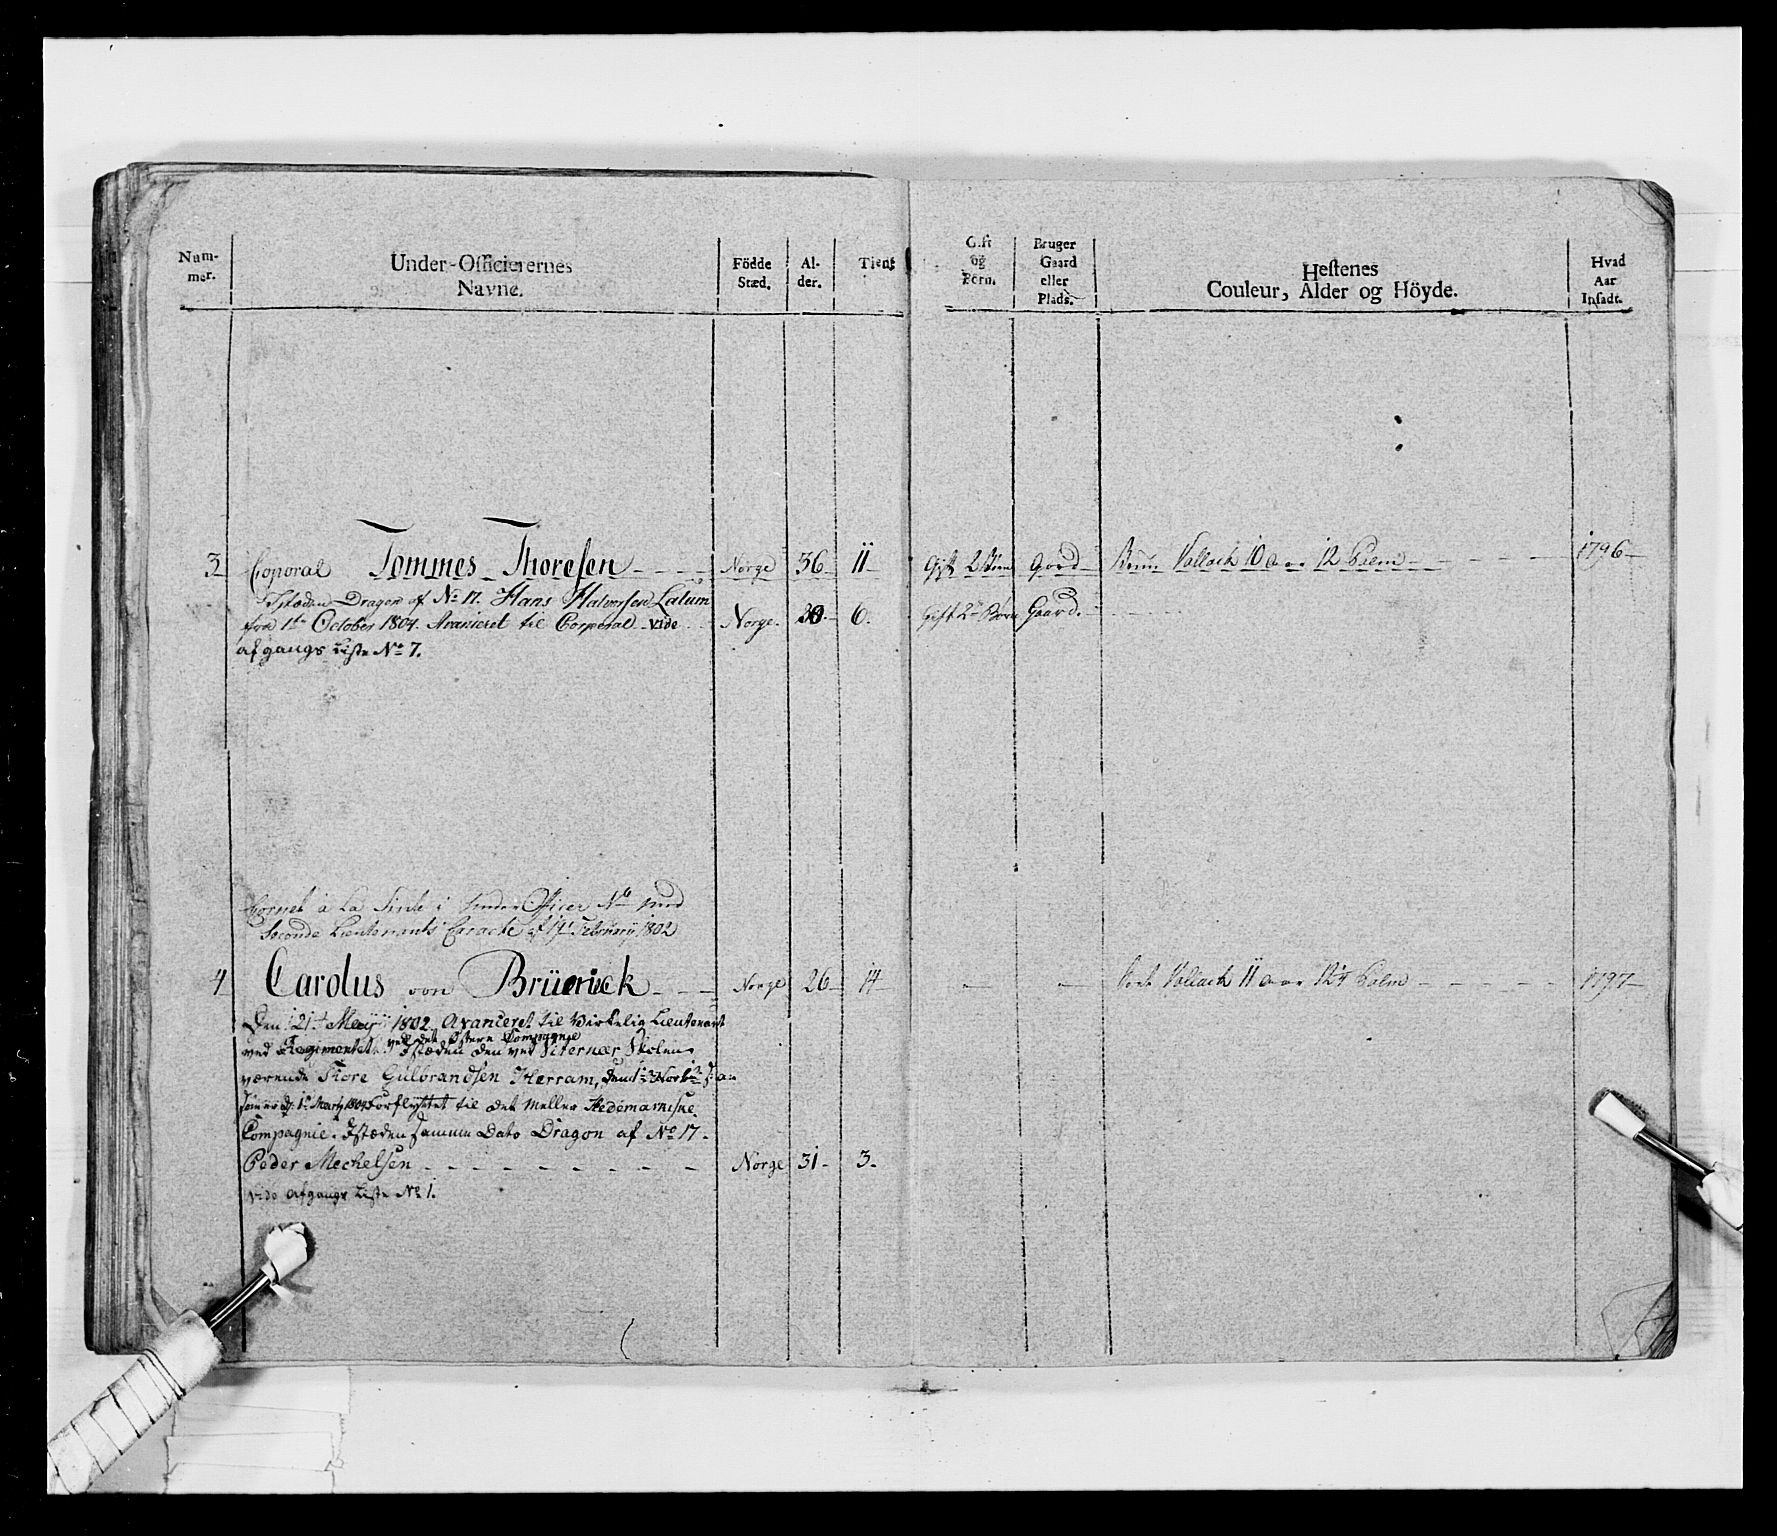 Num-
mer.
Under-Officierernes
Navne.
Födde
Stæd.
Al-
der.
Tient
Gift
og
Börn.
Bruger
Gaard
eller
Plads.
Hestenes
Couleur, Alder og Höyde.
Hvad
Aar
Insadt.
3 Coporal Tommes Thoresen Norge 36 11 Gift 2 Börn Gord Brun Vallack 10 aar 12 Palm 1796
Istæden Dragon af No 17. Hans Halvorsen Lalum
fra 1te October 1804. Avanceret til Corporal vide Norge. 30. 6. Gift 2 Börn Gaard.
afgangs Liste No 7.
Cornet a la Suite i Under Officer No med
Seconde Lieutenants Caracte af 19 February 1802
4 Carolus von Brüerick Norge 26 14 Sort Vallack 11 aar 12¼ Palm 1797
Den 21t Maÿ 1802 Avanceret til Virkelig Lieutenant
ved det Østere Compagnie
ved Regimentet. Istæden den ved Skolen
værende Tore Gulbrandsen Herram,
1t Marty 1804 Forflyttet til det Hedemarkske
Compagnie. Istæden samme Dato Dragon af No 17.
Peder Mechelsen Norge 31 3.
vide Afgangs Liste No 1.